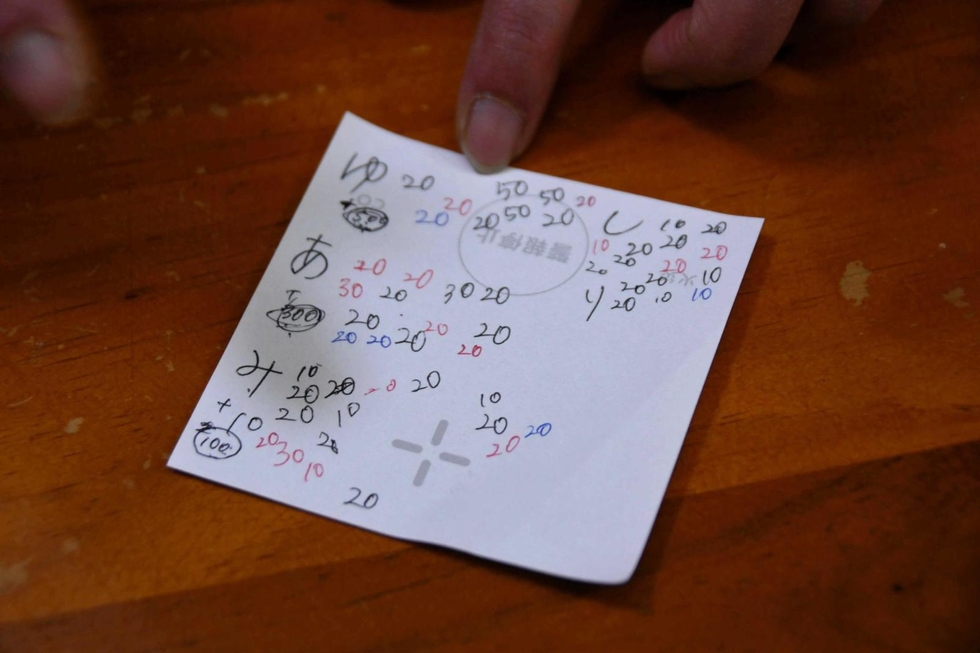 ゆ 20 50 50 20
20 20 50 20
300
20
し 10 20
10 20 20 20
20 20 20 10
り 20 20 10 10
警報停止
あ 20 20
30 20 30 20
300 20 20 20
20 20 20 20
み 10
20 20 20 20 10
+ 10 20 10 20
100 20 30 20 20 20
10
20